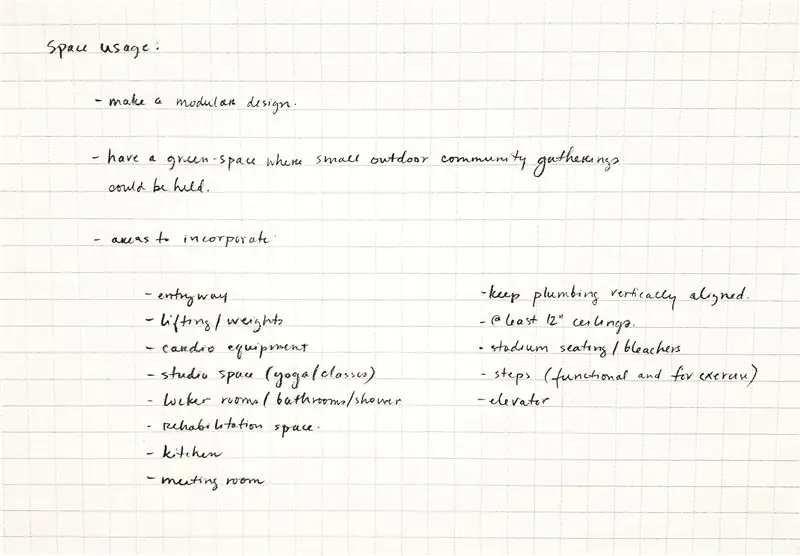 Space usage:
- make a modular design.
- have a green-space where small outdoor community gatherings
could be held.
- areas to incorporate:
- entryway
- lifting/weights
- cardio equipment
- studio space (yoga/classes)
- locker rooms/bathrooms/shower
- rehabilitation space.
- kitchen
- meeting room
- keep plumbing vertically aligned.
- @ least 12" ceilings.
- stadium seating/bleachers
- steps (functional and for exercise)
- elevator